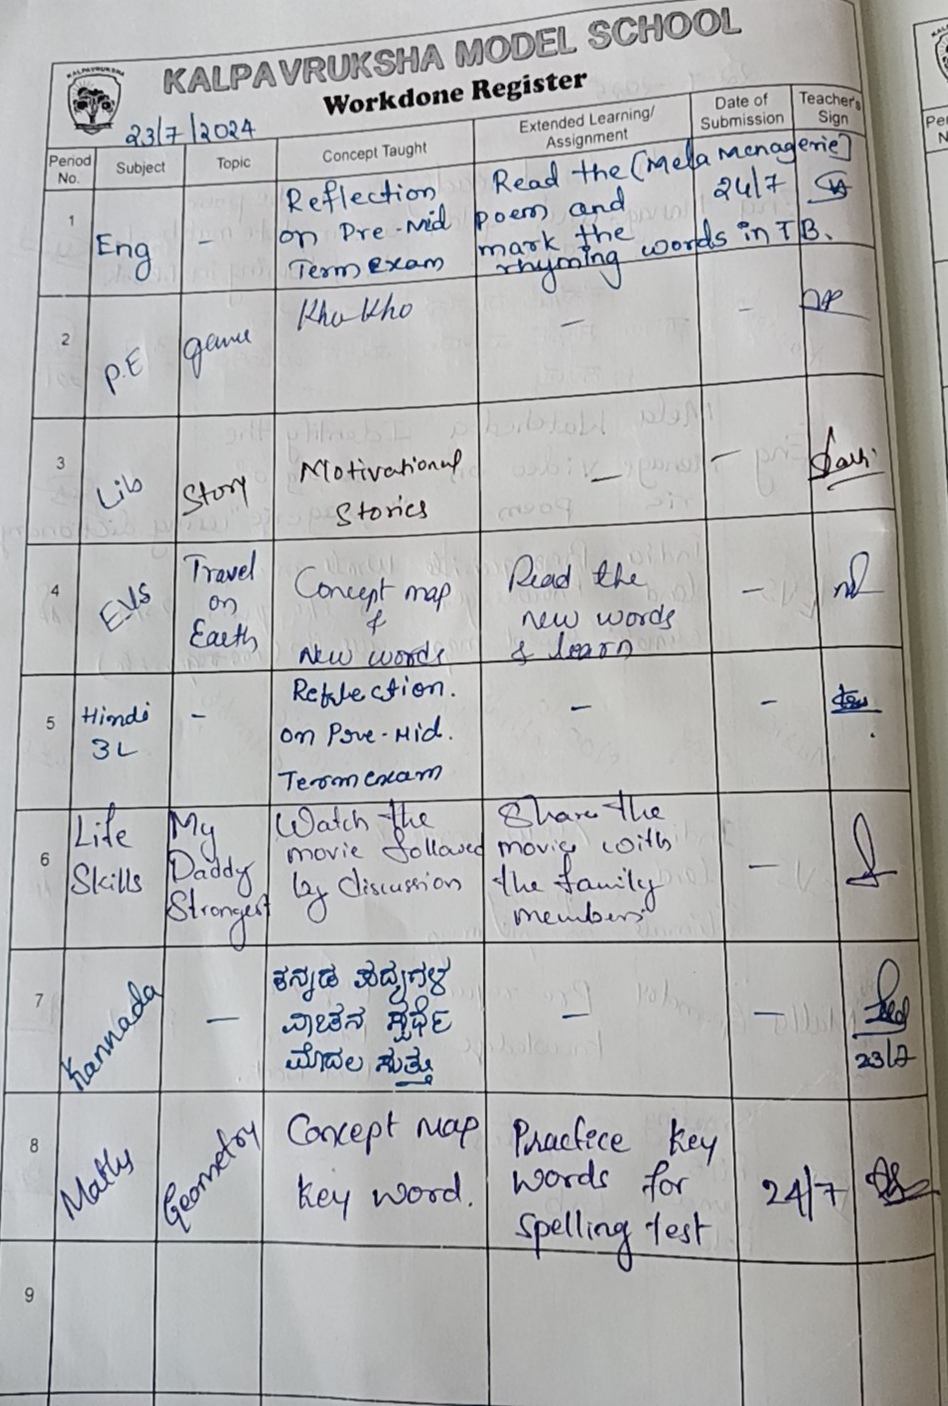 KALPAVRUKSHA
KALPAVRUKSHA MODEL SCHOOL
Workdone Register
23/7/2024
Period No. Subject Topic Concept Taught Extended Learning/ Assignment Date of Submission Teacher's Sign
1 Eng - Reflection on Pre-Mid Term exam Read the (Mela Menagerie) poem and mark the rhyming words in TB. 24/7
2 P.E game Kho Kho - -
3 Lib Story Motivational Stories - -
4 EVS Travel on Earth Concept map & New words Read the new words & learn -
5 Hindi 3L - Reflection. on Pre-Mid. Term exam - -
6 Life Skills My Daddy Strongest Watch the movie followed by discussion Share the movie with the family members -
7 Kannada - ಕನ್ನಡ ಪದ್ಯಗಳ ವಾಚನ ಸ್ಪರ್ಧೆ ಮೊದಲ ಸುತ್ತು - - 23/7
8 Maths Geometry Concept Map Key word. Practice key words for spelling test 24/7
9